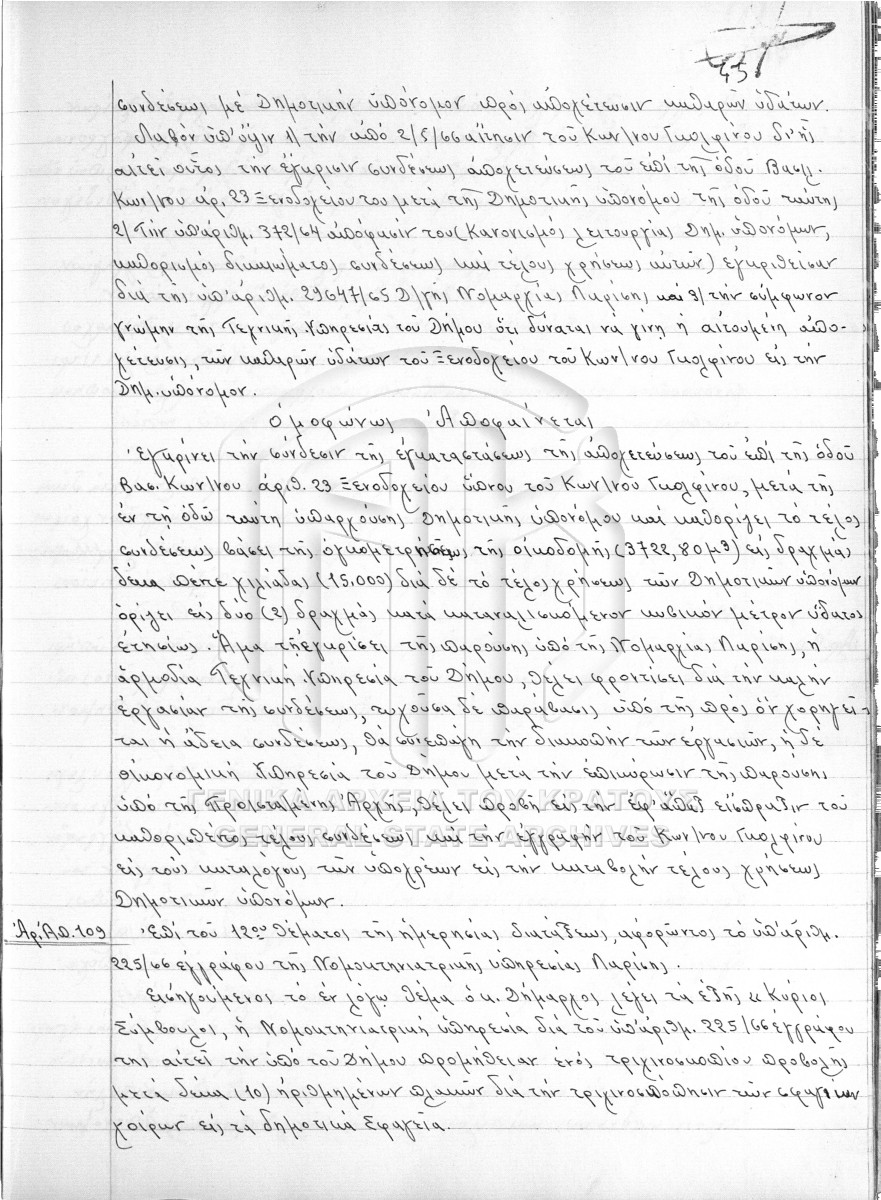 45
συνδέσεως μέ Δημοτικήν ὑπόνομον πρός ἀποχέτευσιν καθαρῶν ὑδάτων.
Λαβόν ὑπ' ὄψιν 1/ τήν ἀπό 2/5/66 αἴτησιν τοῦ Κων/νου Γκολφίνου δι' ἧς
αἰτεῖ οὗτος τήν ἔγκρισιν συνδέσεως ἀποχετεύσεως τοῦ ἐπί τῆς ὁδοῦ Βασιλ.
Κων/νου άρ. 23 Ξενοδοχείου του μετά τῆς Δημοτικῆς ὑπονόμου τῆς ὁδοῦ ταύτης
2/ Τήν ὑπ' ἀριθμ. 372/64 ἀπόφασιν του (Κανονισμός λειτουργίας Δημ. ὑπονόμων,
καθορισμός δικαιώματος συνδέσεως καί τέλους χρήσεως αὐτῶν) ἐγκριθεῖσαν
διά τῆς ὑπ' ἀριθμ. 29647/65 Δ/γῆς Νομαρχίας Λαρίσης καί 3/ τήν σύμφωνον
γνώμην τῆς Τεχνικῆς Ὑπηρεσίας τοῦ Δήμου ὅτι δύναται να γίνῃ ἡ αἰτουμένη ἀπο-
χέτευσις, τῶν καθαρῶν ὑδάτων τοῦ Ξενοδοχείου τοῦ Κων/νου Γκολφίνου εἰς τήν
Δημ. ὑπόνομον.
Ὁμοφώνως Ἀποφαίνεται
Ἐγκρίνει τήν σύνδεσιν τῆς ἐγκαταστάσεως τῆς ἀποχετεύσεως τοῦ ἐπί τῆς ὁδοῦ
Βασ. Κων/νου ἀριθ. 23 Ξενοδοχείου ὕπνου τοῦ Κων/νοῦ Γκολφίνου, μετά τῆς
ἐν τῇ ὁδῷ ταύτῃ ὑπαρχούσης Δημοτικῆς ὑπονόμου καί καθορίζει τό τέλος
συνδέσεως βάσει τῆς ὀγκομετρήσεως τῆς οἰκοδομῆς (3722,80 μ3) εἰς δραχμάς
δέκα πέντε χιλιάδας (15.000) διά δέ τό τέλος χρήσεως τῶν Δημοτικῶν ὑπονόμων
ὁρίζει εἰς δύο (2) δραχμάς κατά καταναλισκόμενον κυβικόν μέτρον ὕδατος
ἐτησίως. Ἅμα τῇ ἐγκρίσει τῆς παρούσης ὑπό τῆς Νομαρχίας Λαρίσης, ἡ
ἁρμοδία Τεχνική Ὑπηρεσία τοῦ Δήμου, θέλει φροντίσει διά τήν καλήν
ἐργασίαν τῆς συνδέσεως, τυχοῦσα δέ παράβασις ὑπό τῆς πρός ὅν χορηγεῖ-
ται ἡ ἄδεια συνδέσεως, θά συνεπαγῃ τήν διακοπήν τῶν ἐργασιῶν, ἡ δέ
Οἰκονομική Ὑπηρεσία τοῦ Δήμου μετά τήν ἐπικύρωσιν τῆς παρούσης
ὑπό τῆς Προϊσταμένης Ἀρχῆς, θέλει προβῆ εἰς τήν ἐφ' ἅπαξ εἴσπραξιν τοῦ
καθορισθέντος τέλους συνδέσεως καί τήν ἐγγραφήν τοῦ Κων/νου Γκολφίνου
εἰς τούς καταλόγους τῶν ὑποχρέων εἰς τήν καταβολήν τέλους χρήσεως
Δημοτικῶν ὑπονόμων.
Ἀρ. Ἀπ. 109
Ἐπί τοῦ 12ου θέματος τῆς ἡμερησίας διατάξεως, ἀφορῶντος τό ὑπ' ἀριθμ.
225/66 ἐγγράφου τῆς Νομοκτηνιατρικῆς ὑπηρεσίας Λαρίσης.
Εἰσηγούμενος τό ἐν λόγῳ θέμα ὁ κ. Δήμαρχος λέγει τά ἑξῆς « Κύριοι
Σύμβουλοι, ἡ Νομοκτηνιατρική ὑπηρεσία διά τοῦ ὑπ' ἀριθμ. 225/66 ἐγγράφου
της αἰτεῖ τήν ὑπό τοῦ Δήμου προμήθειαν ἑνός τριχινοσκοπίου προβολῆς
μετά δέκα (10) ἠριθμημένων πλακῶν διά τήν τριχινοσκόπησιν τῶν σφαγίων
χοίρων εἰς τά δημοτικά Σφαγεῖα.
ΓΕΝΙΚΑ ΑΡΧΕΙΑ ΤΟΥ ΚΡΑΤΟΥΣ
GENERAL STATE ARCHIVES